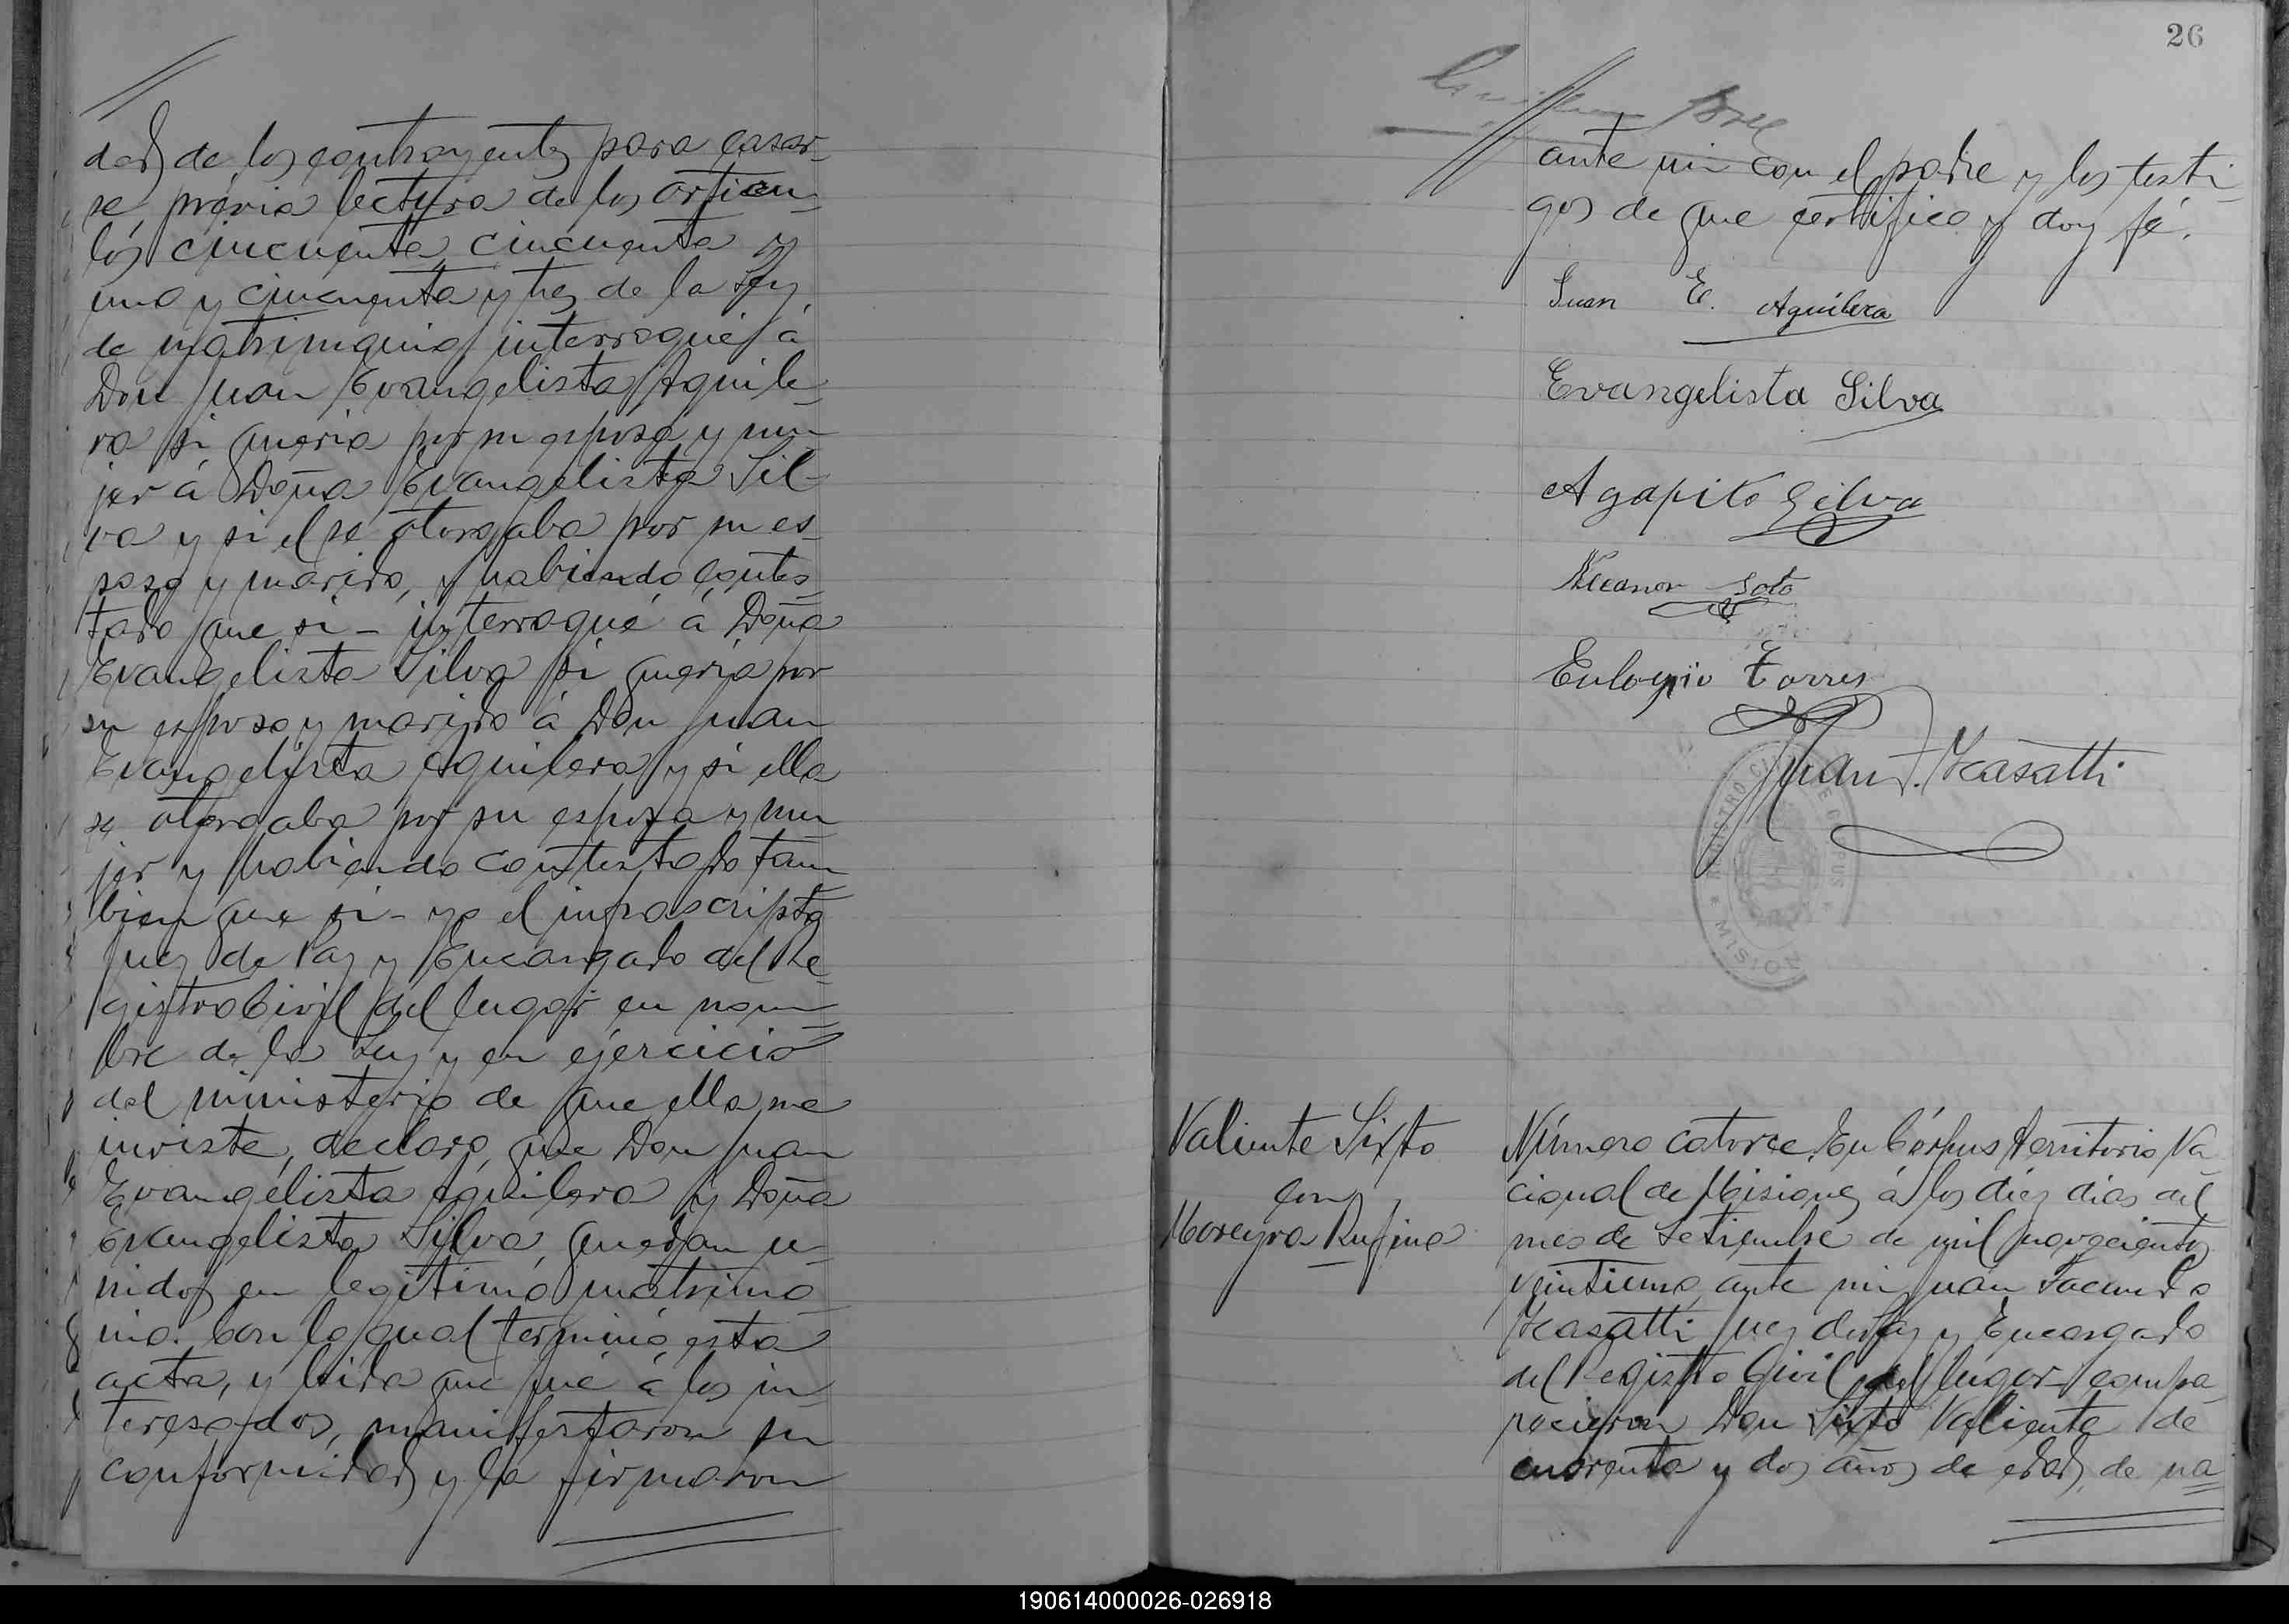 dad de los contrayentes para casar-
se, prévia lectura de los articu-
los cincuenta, cincuenta y
uno y cincuenta y tres de la Ley
de matrimonio, interrogué á
Don Juan Evangelista Aguile-
ra si queria por su esposa y mu-
jer á Doña Evangelista Sil-
va y si el se otorgaba por su es-
poso y marido, y habiendo contes-
tado que si - interrogué á Doña
Evangelista Silva si queria por
su esposo y marido á Don Juan
Evangelista Aguilera y si ella
se otorgaba por su esposa y mu-
jer y habiendo contestado tam-
bien que si - yo el infrascripto
Juez de Paz y Encargado del Re-
gistro Civil del lugar en nom-
bre de la Ley y en ejercicio
del ministerio de que ella me
inviste, declaro, que Don Juan
Evangélista Aguilera y Doña
Evangelista Silva, quedan u-
nidos en legítimo matrimo-
nio. Con lo qual terminó esta
acta, y leida que fué á los in-
teresados, manifestaron su
conformidad y la firmaron
26
ante mi con el padre y los testi-
gos de que certifico y doy fé.
Juan E. Aguilera
Evangelista Silva
Agapito Silva
Nicanor Soto
Eulogio Torres
Juan F. Kasatti
REGISTRO CIVIL DE CORPUS
* MISIONES *
Valiente Sixto
con
Moreyra Rufina
Número catorce. En Córpus Territorio Na-
cional de Misiones á los diez dias del
mes de Setiembre de mil novecientos
veintiuno, ante mi Juan Facundo
Kasatti Juez de Paz y Encargado
del Registro Civil del lugar compa-
recieron Don Sixto Valiente de
cuarenta y dos años de edad, de na-
190614000026-026918